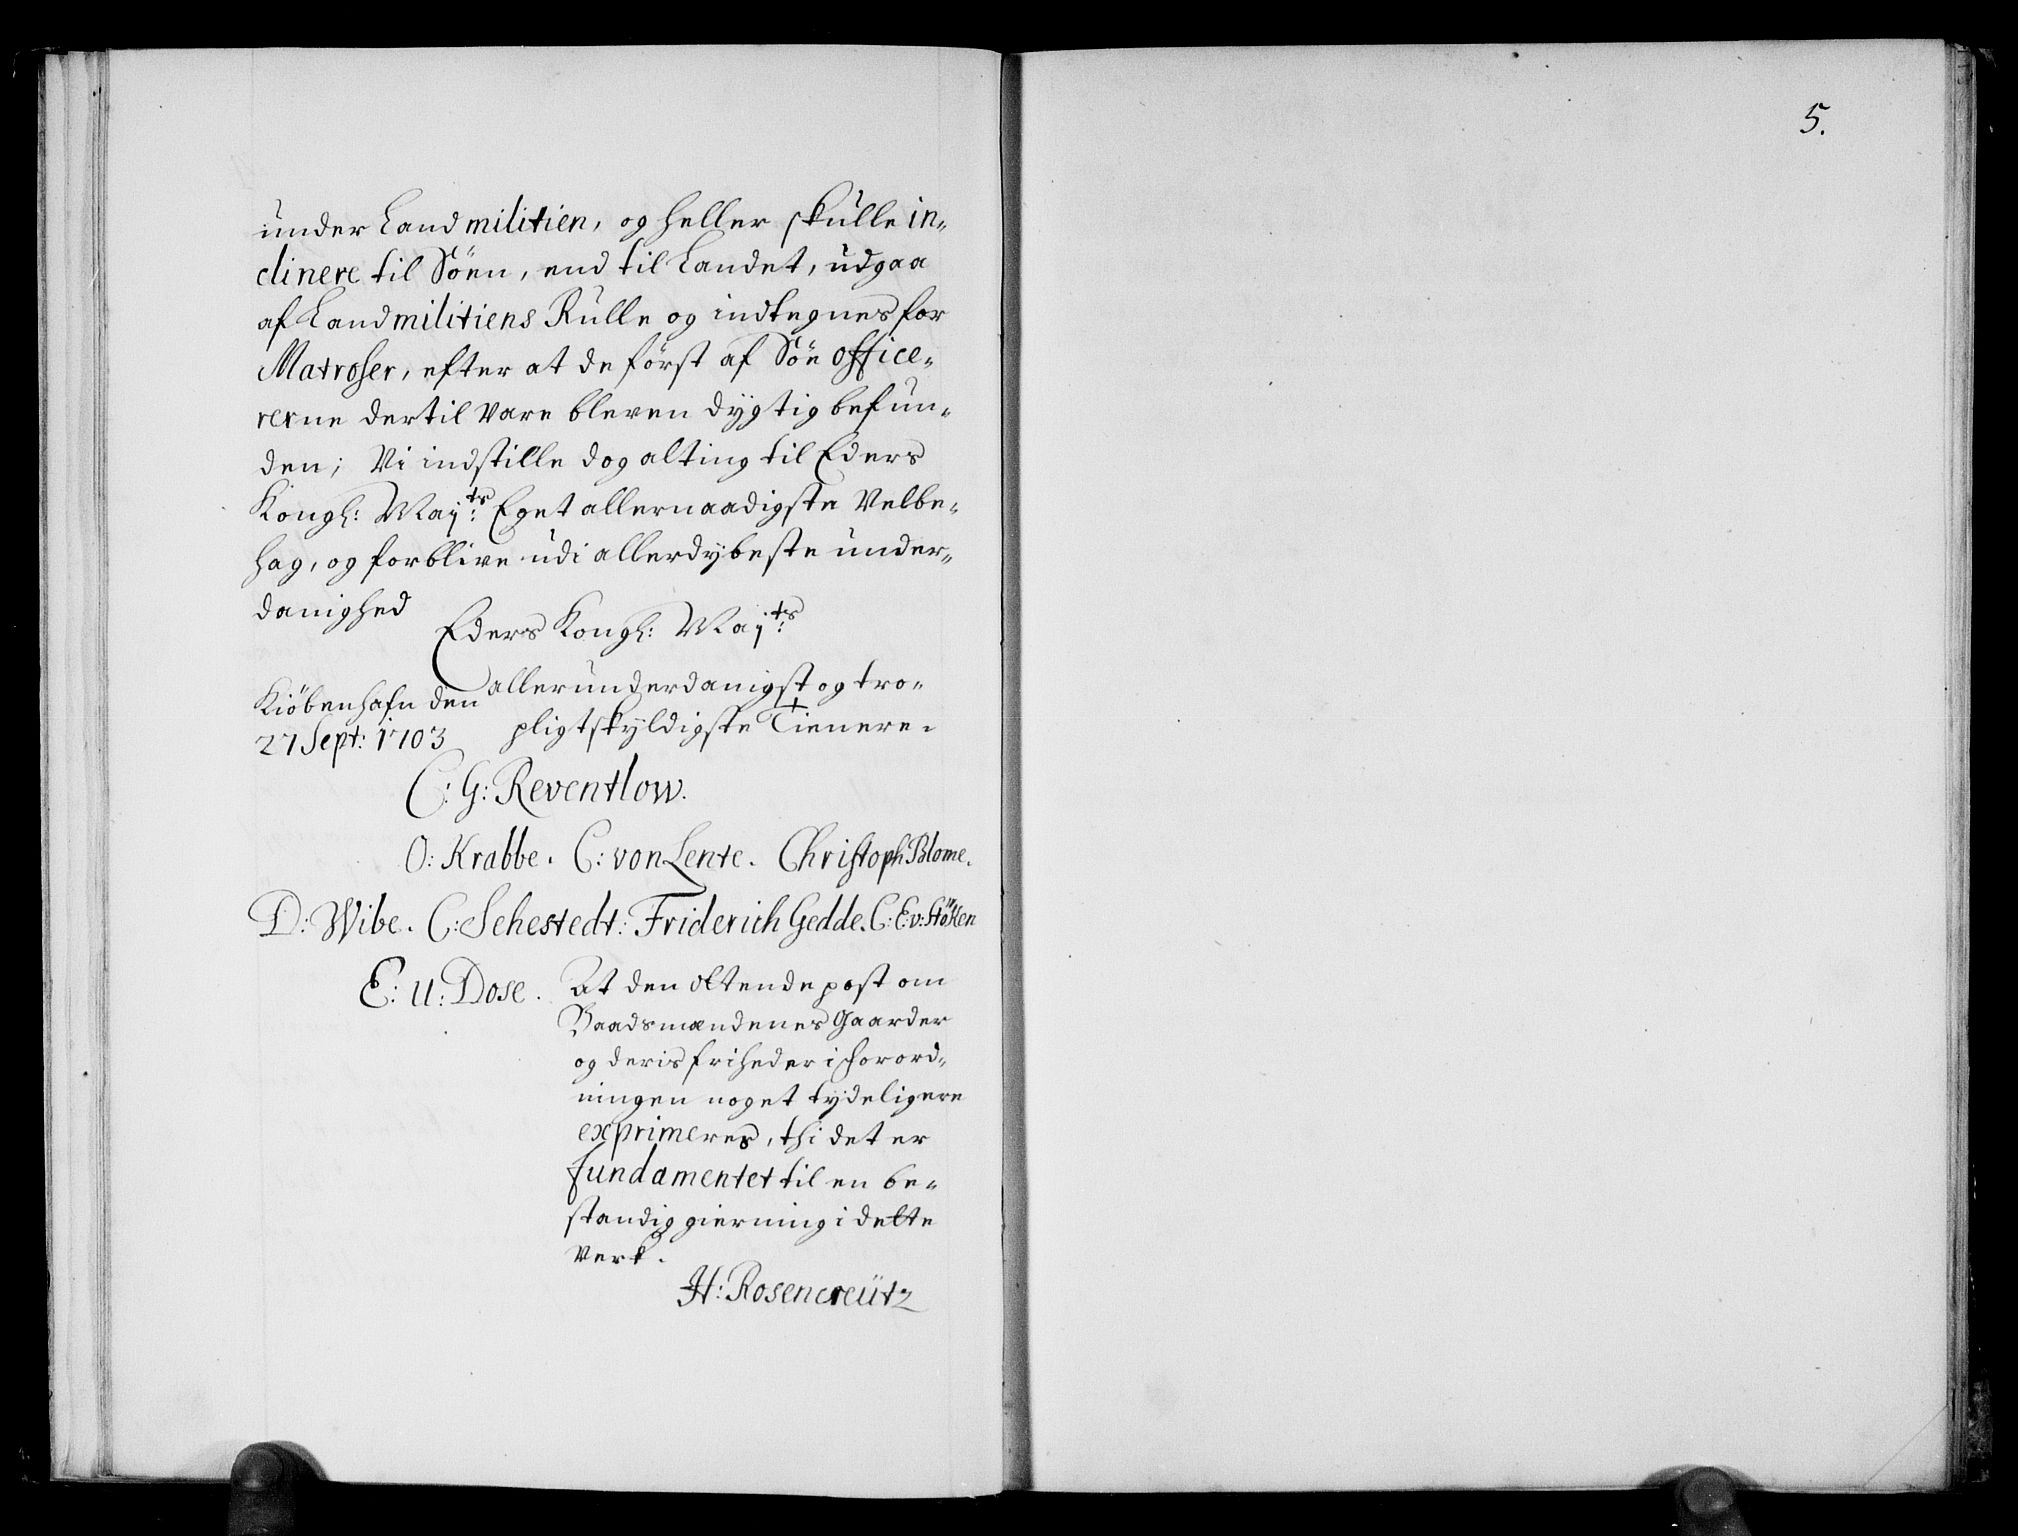 under Landmilitien, og heller skulle in-
clinere til Söen, end til Landet, udgaa
af Landmilitiens Rulle og indtegnes for
Matroser, efter at de först af Söe office-
rerne dertil vare bleven dygtig befun-
den; Vi indstille dog alting til Eders
Kongl: Maj:ts Eget allernaadigste Velbe-
hag, og forblive udi allerdybeste under-
danighed
Eders Kongl: Maj:ts
allerunderdanigst og tro-
pligtskyldigste Tienere.
Kiöbenhafn den
27 Sept: 1703
C: G: Reventlow.
O: Krabbe. C: von Lente. Christoph Blome.
D: Wibe. C: Sehestedt: Friderich Gedde. C: E: v: Stöken
E: U: Dose.
At den ottende post om
Baadsmændenes Gaarder
og deris friheder i Forord-
ningen noget tydeligere
exprimeres, thi det er
fundamentet til en be-
standig gierning i dette
Verk.
H: Rosencreütz
5.